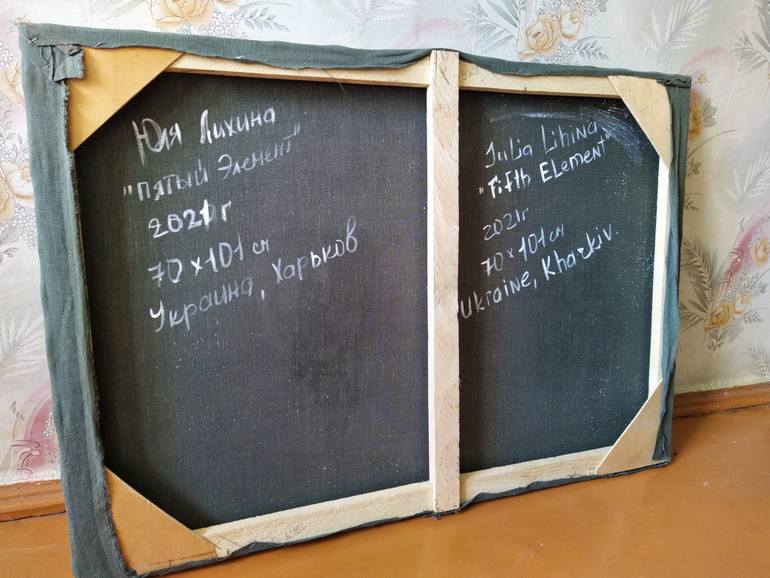 Юля Лихина
"Пятый Элемент"
2021г
70 x 101 см
Украина, Харьков
Julia Lihina
"Fifth Element"
2021г
70 x 101 см
Ukraine, Kharkiv.